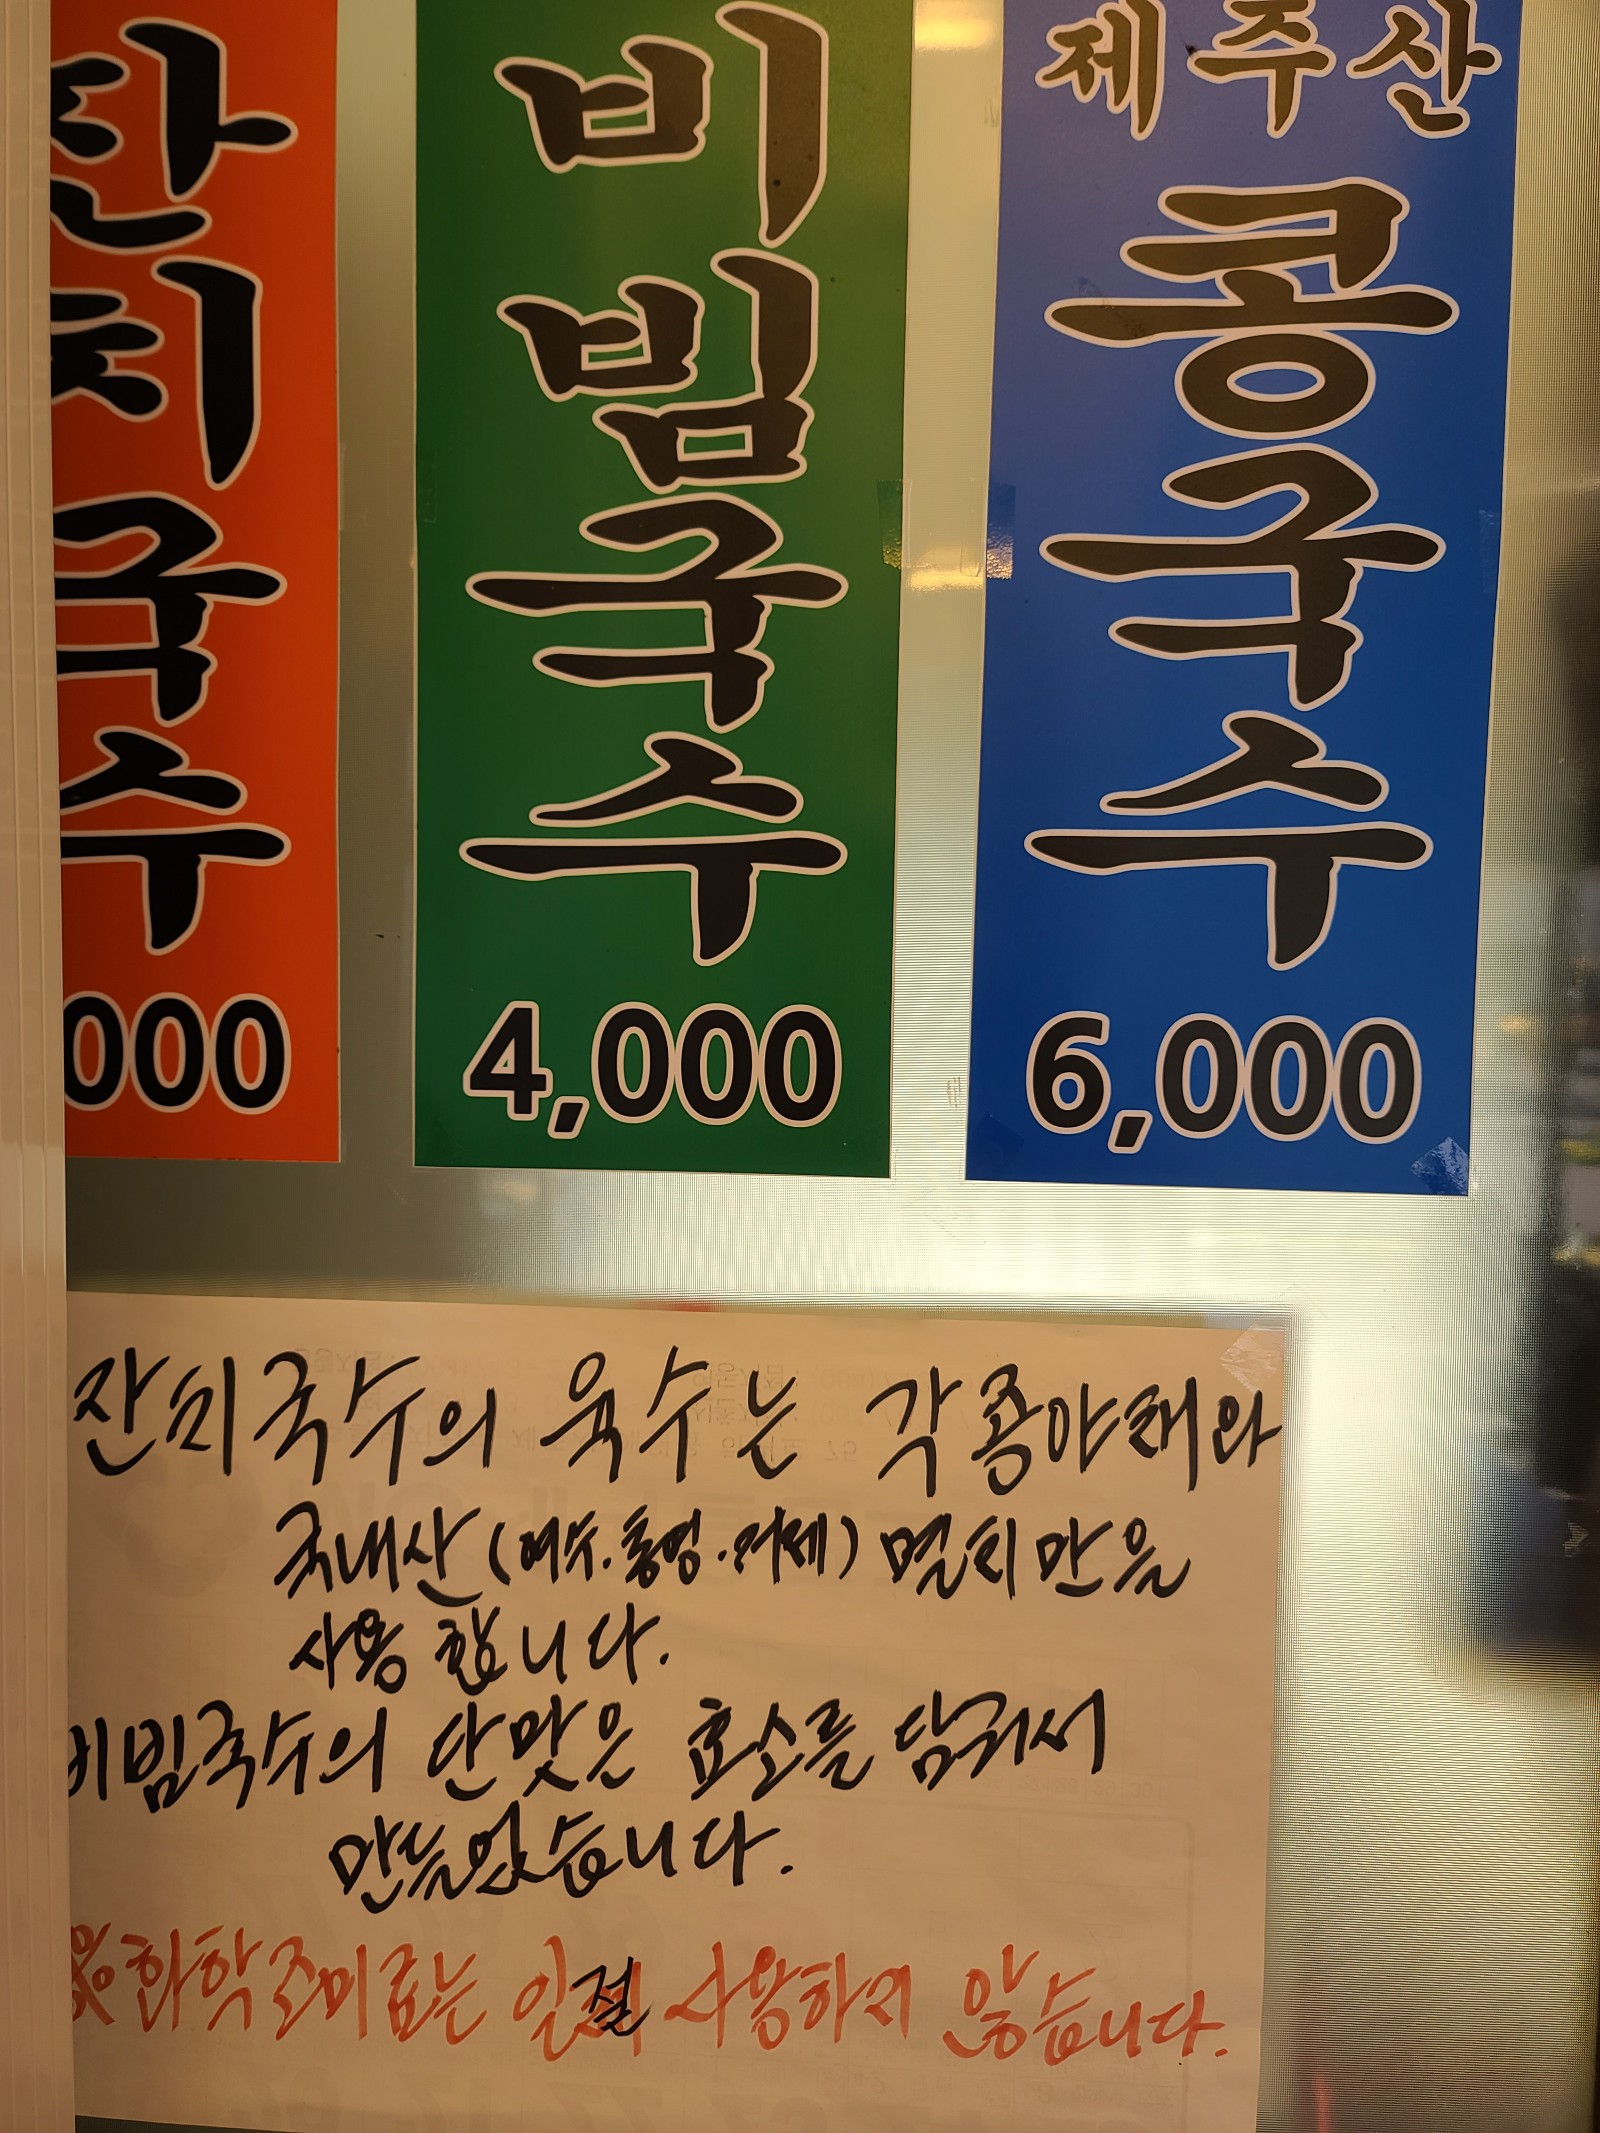 잔치국수
000
비빔국수
4,000
제주산
콩국수
6,000
잔치국수의 육수는 각종야채와
국내산(여수.통영.거제) 멸치만을
사용합니다.
비빔국수의 단맛은 효소를 담궈서
만들었습니다.
※화학조미료는 일절 사용하지 않습니다.